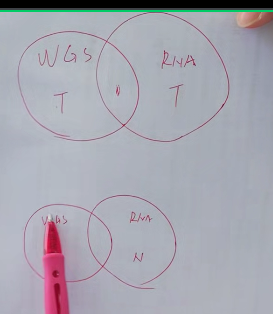 WGS RNA
T T
WGS RNA
N